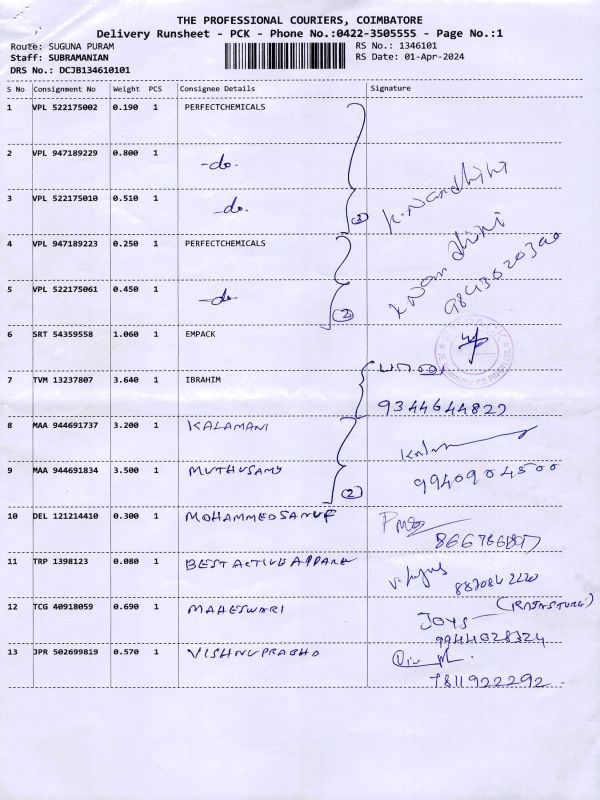 THE PROFESSIONAL COURIERS, COIMBATORE
Delivery Runsheet - PCK - Phone No.:0422-3505555 - Page No.:1
Route: SUGUNA PURAM RS No.: 1346101
Staff: SUBRAMANIAN RS Date: 01-Apr-2024
DRS No.: DCJB134610101
S No Consignment No Weight PCS Consignee Details Signature
1 VPL 522175002 0.190 1 PERFECTCHEMICALS
2 VPL 947189229 0.800 1 -do.
3 VPL 522175010 0.510 1 -do. (3) K.Nandhini
4 VPL 947189223 0.250 1 PERFECTCHEMICALS
5 VPL 522175061 0.450 1 -do. (2) K Nandhini
6 SRT 54359558 1.060 1 EMPACK
7 TVM 13237807 3.640 1 IBRAHIM
8 MAA 944691737 3.200 1 KALAMANI
9 MAA 944691834 3.500 1 MUTHUSAMY (2) 9940904500
10 DEL 121214410 0.300 1 MOHAMMED SANUF
11 TRP 1398123 0.080 1 BEST ACTIVE APPARE
12 TCG 40918059 0.690 1 MAHESWARI JOYS
9944028324
13 JPR 502699819 0.570 1 VISHNU PRABHO
7811922292